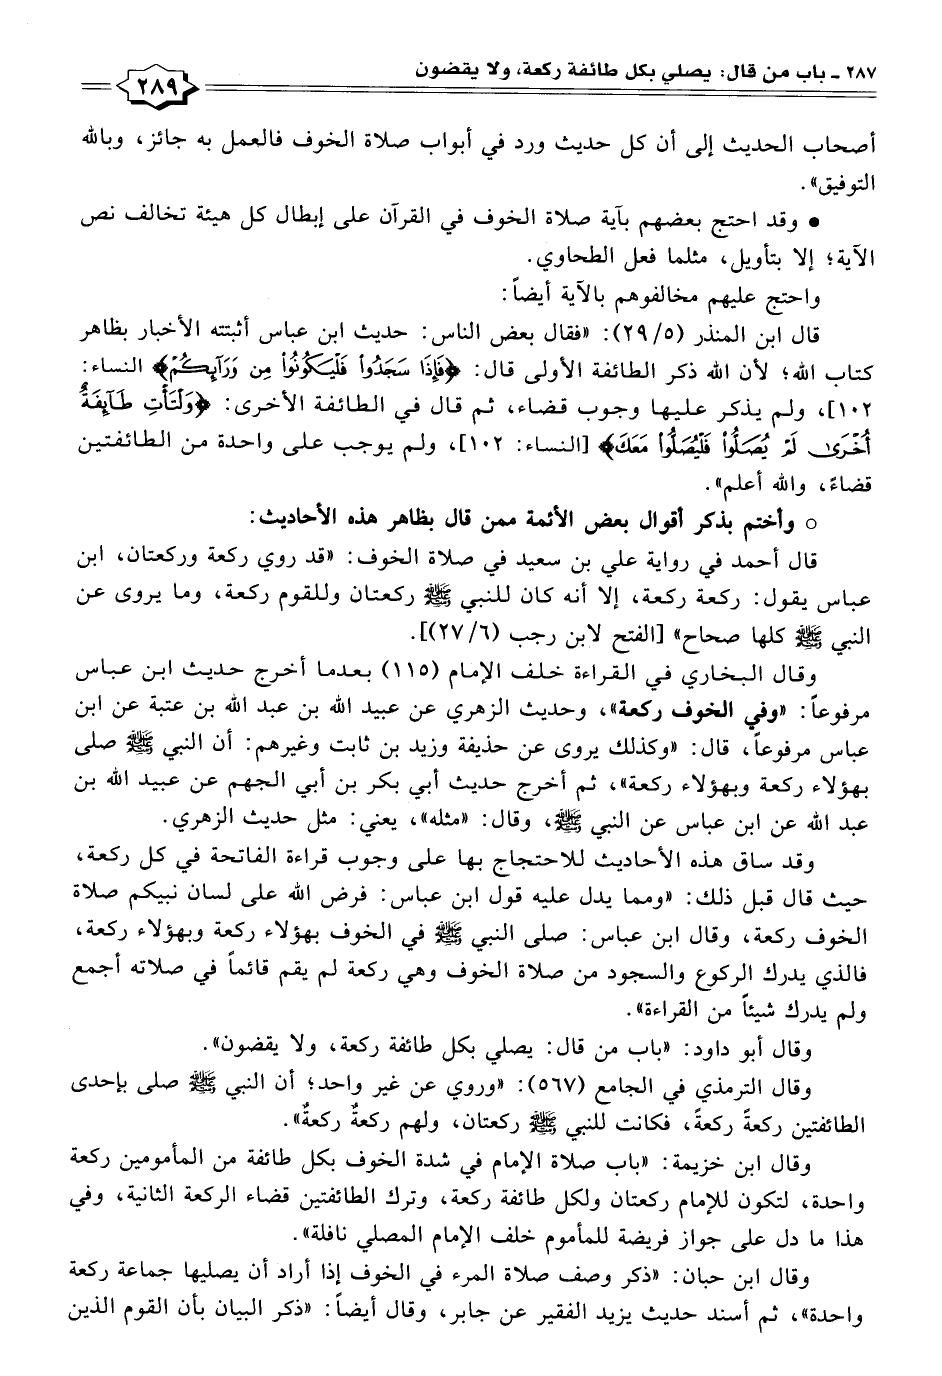 ٢٨٧ - باب من قال: يصلي بكل طائفة ركعة، ولا يقضون
٢٨٩
أصحاب الحديث إلى أن كل حديث ورد في أبواب صلاة الخوف فالعمل به جائز، وبالله
التوفيق».
• وقد احتج بعضهم بآية صلاة الخوف في القرآن على إبطال كل هيئة تخالف نص
الآية؛ إلا بتأويل، مثلما فعل الطحاوي.
واحتج عليهم مخالفوهم بالآية أيضاً:
قال ابن المنذر (٢٩/٥): «فقال بعض الناس: حديث ابن عباس أثبتته الأخبار بظاهر
كتاب الله؛ لأن الله ذكر الطائفة الأولى قال: ﴿فَإِذَا سَجَدُوا۟ فَلْيَكُونُوا۟ مِن وَرَآئِكُمْ﴾ النساء:
١٠٢]، ولم يذكر عليها وجوب قضاء، ثم قال في الطائفة الأخرى: ﴿وَلْتَأْتِ طَآئِفَةٌ
أُخْرَىٰ لَمْ يُصَلُّوا۟ فَلْيُصَلُّوا۟ مَعَكَ﴾ [النساء: ١٠٢]، ولم يوجب على واحدة من الطائفتين
قضاءً، والله أعلم».
○ وأختم بذكر أقوال بعض الأئمة ممن قال بظاهر هذه الأحاديث:
قال أحمد في رواية علي بن سعيد في صلاة الخوف: «قد روي ركعة وركعتان، ابن
عباس يقول: ركعة ركعة، إلا أنه كان للنبي ﷺ ركعتان وللقوم ركعة، وما يروى عن
النبي ﷺ كلها صحاح» [الفتح لابن رجب (٢٧/٦)].
وقال البخاري في القراءة خلف الإمام (١١٥) بعدما أخرج حديث ابن عباس
مرفوعاً: «وفي الخوف ركعة»، وحديث الزهري عن عبيد الله بن عبد الله بن عتبة عن ابن
عباس مرفوعاً، قال: «وكذلك يروى عن حذيفة وزيد بن ثابت وغيرهم: أن النبي ﷺ صلى
بهؤلاء ركعة وبهؤلاء ركعة»، ثم أخرج حديث أبي بكر بن أبي الجهم عن عبيد الله بن
عبد الله عن ابن عباس عن النبي ﷺ، وقال: «مثله»، يعني: مثل حديث الزهري.
وقد ساق هذه الأحاديث للاحتجاج بها على وجوب قراءة الفاتحة في كل ركعة،
حيث قال قبل ذلك: «ومما يدل عليه قول ابن عباس: فرض الله على لسان نبيكم صلاة
الخوف ركعة، وقال ابن عباس: صلى النبي ﷺ في الخوف بهؤلاء ركعة وبهؤلاء ركعة،
فالذي يدرك الركوع والسجود من صلاة الخوف وهي ركعة لم يقم قائماً في صلاته أجمع
ولم يدرك شيئاً من القراءة».
وقال أبو داود: «باب من قال: يصلي بكل طائفة ركعة، ولا يقضون».
وقال الترمذي في الجامع (٥٦٧): «وروي عن غير واحد؛ أن النبي ﷺ صلى بإحدى
الطائفتين ركعةً ركعةً، فكانت للنبي ﷺ ركعتان، ولهم ركعةٌ ركعةٌ».
وقال ابن خزيمة: «باب صلاة الإمام في شدة الخوف بكل طائفة من المأمومين ركعة
واحدة، لتكون للإمام ركعتان ولكل طائفة ركعة، وترك الطائفتين قضاء الركعة الثانية، وفي
هذا ما دل على جواز فريضة للمأموم خلف الإمام المصلي نافلة».
وقال ابن حبان: «ذكر وصف صلاة المرء في الخوف إذا أراد أن يصليها جماعة ركعة
واحدة»، ثم أسند حديث يزيد الفقير عن جابر، وقال أيضاً: «ذكر البيان بأن القوم الذين